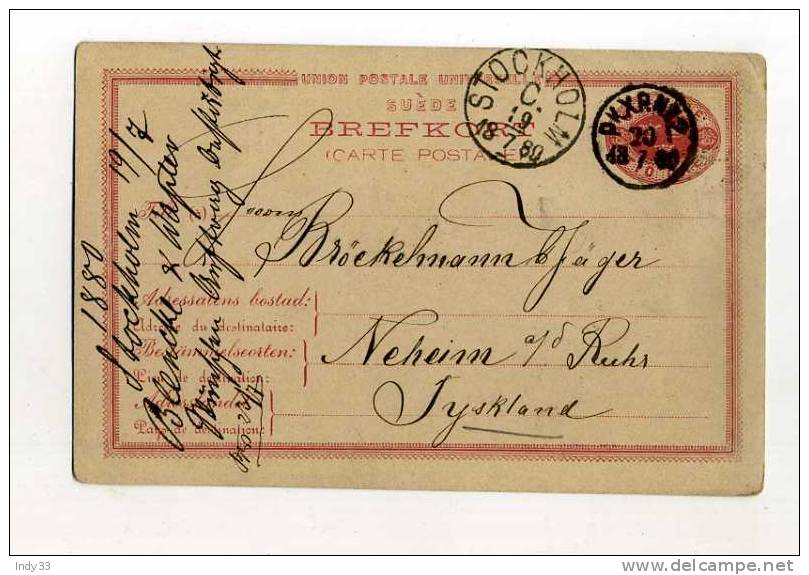 UNION POSTALE UNIVERSELLE
SUÈDE
BREFKORT
(CARTE POSTALE)
STOCKHOLM
C.
19.
18 7 80
PKXRN
20
18 7 80
Herrn
Bröckelmann & Jäger
Neheim a/d Ruhr
Tyskland
Adressatens bostad:
Adresse du destinataire:
Bestämmelseorten:
Lieu de destination:
Adresslandet:
Pays de destination:
1880
Stockholm 19/7
Indy33
delcampe.net